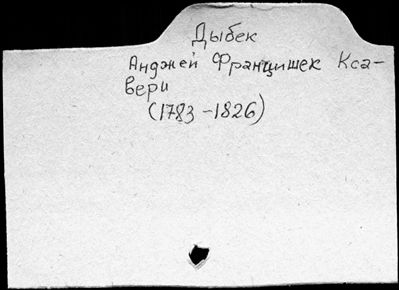 Дыбек
Анджей Францишек Кса-
вери
(1783-1826)